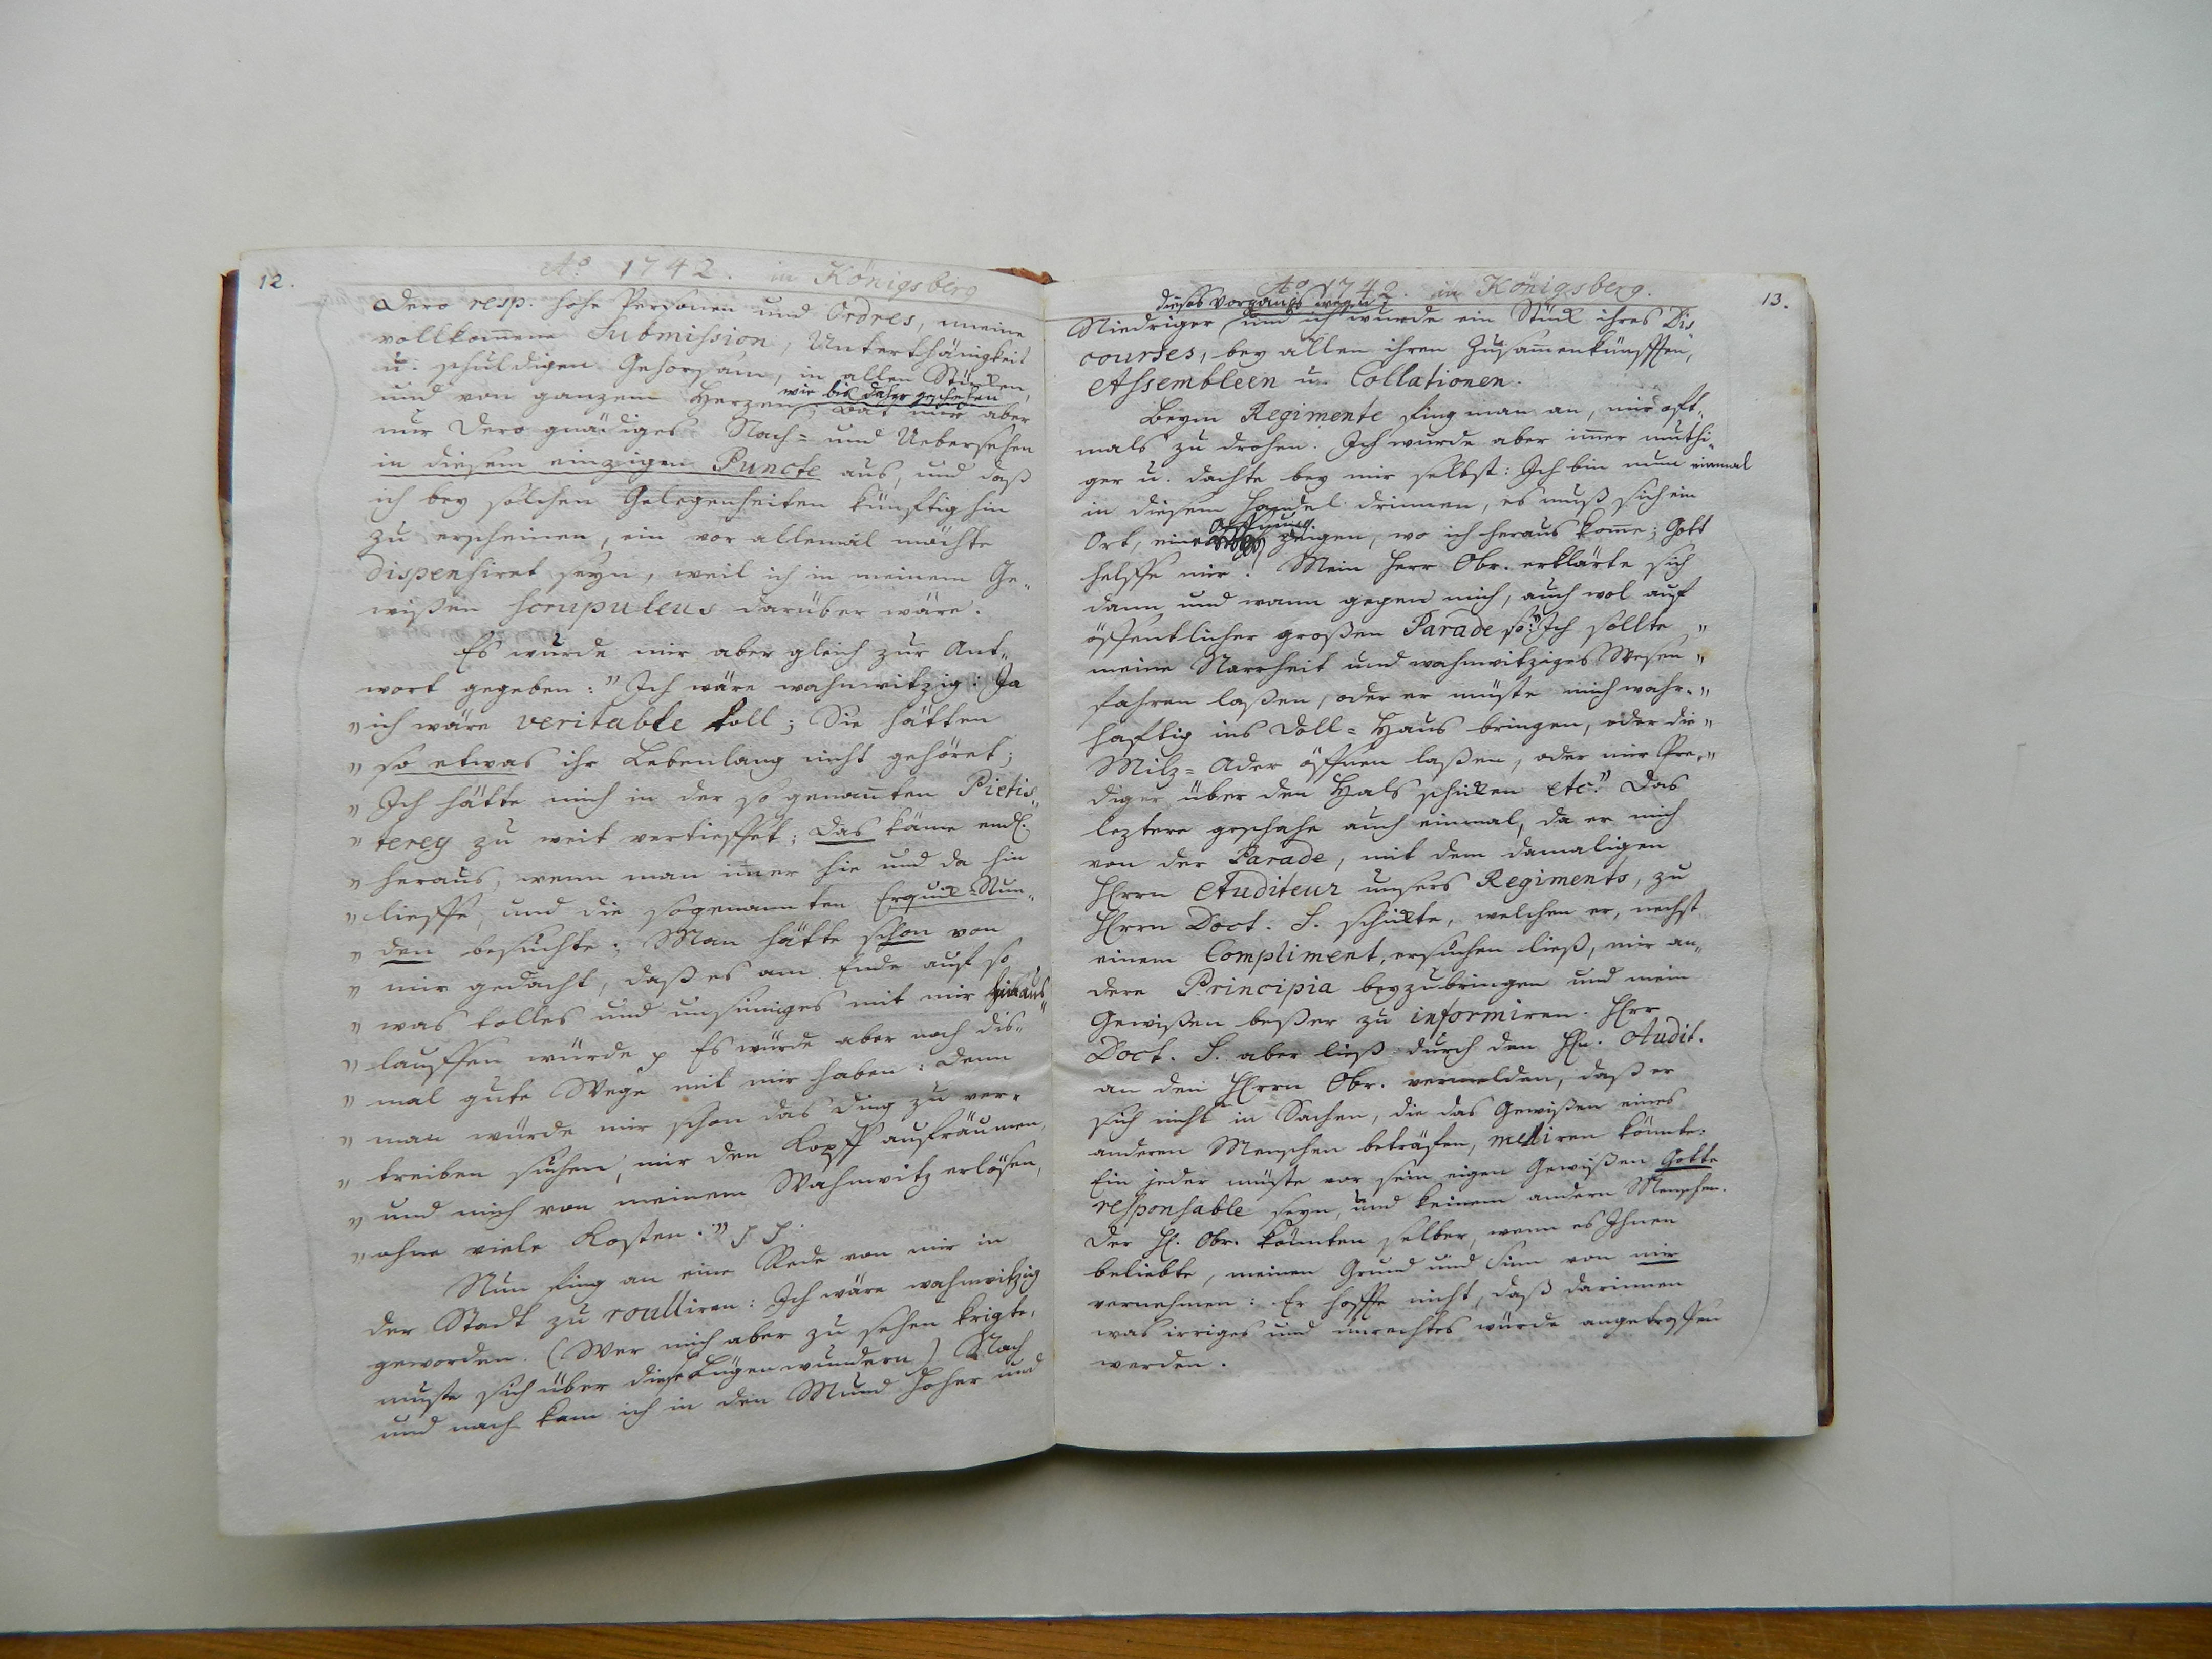 12.
Ao. 1742. in Königsberg
Dero resp. hohe Personen und Ordres, meine
vollkom̄ene Submission, Unterthänigkeit
u. schuldigen Gehorsam, in allen Stücken,
wie bis daher geschehen
und von ganzem Herzen; bat mir aber
nur Dero gnädiges Nach- und Uebersehen
in diesem einzigen Puncte aus, und daß
ich bey solchen Gelegenheiten künftig hin
zu erscheinen, ein vor allemal möchte
dispensiret seyn, weil ich in meinem Ge„
wißen scrupuleus darüber wäre.
Es wurde mir aber gleich zur Ant„
wort gegeben: "Ich wäre wahnwitzig: Ja
" ich wäre veritable toll; Sie hätten
" so etwas ihr Lebenlang nicht gehöret;
" Ich hätte mich in der so genan̄ten Pietis„
" terey zu weit vertieffet; Das käme endl.
" heraus, wenn man im̄er hie und da hin
" lieffe, und die sogenannten Erquick-Stun„
" den besuchte: Man hätte schon von
" mir gedacht, daß es am Ende auf so
" was tolles und unsinniges mit mir hinaus„
" lauffen würde p Es würde aber noch dis„
" mal gute Wege mit mir haben: Denn
" man würde mir schon das Ding zu ver„
" treiben suchen, mir den Kopff aufräumen,
" und mich von meinem Wahnwitz erlösen,
" ohne viele Kosten."
Nun fing an eine Rede von mir in
der Stadt zu roulliren: Ich wäre wahnwitzig
geworden. (Wer mich aber zu sehen krigte,
muste sich über diese Lügen wundern) Nach
und nach kam ich in den Mund Hoher und
13.
Ao. 1742. in Königsberg.
dieses Vorgangs wegen
Niedriger und ich wurde ein Stück ihres Dis
courses, bey allen ihren Zusam̄enkünfften,
Assembleen u. Collationen.
Beym Regimente fing man an, mir oft„
mals zu drohen. Ich wurde aber im̄er muthi„
ger u. dachte bey mir selbst: Ich bin nun einmal
in diesem Handel drinnen, es muß sich ein
Oeffnung
Ort, eine zeigen, wo ich heraus kom̄e; Gott
helffe mir! Mein Herr Obr. erklärte sich
dann und wann gegen mich, auch wol auf
öffentlicher großen Parade so: "Ich sollte "
meine Narrheit und wahnwitziges Wesen "
fahren laßen, oder er müste mich wahr- "
hafftig ins Doll-Haus bringen, oder die "
Milz-Ader öffnen laßen, oder mir Pre- "
diger über den Hals schicken etc." Das
leztere geschahe auch einmal, da er mich
von der Parade, mit dem damaligen
Herrn Auditeur unsers Regiments, zu
Herrn Doct. S. schickte, welchen er, nechst
einem Compliment, ersuchen ließ, mir an„
dere Principia beyzubringen und mein
Gewißen beßer zu informiren. Herr
Doct. S. aber ließ durch den Hn. Audit.
an den Herrn Obr. vermelden, daß er
sich nicht in Sachen, die das Gewißen eines
anderen Menschen beträfen, meliren könnte:
Ein jeder müste vor sein eigen Gewißen Gotte
responsable seyn, und keinem andern Menschen.
Der H. Obr. könnten selber, wenn es Ihnen
beliebte, meinen Grund und Sinn von mir
vernehmen: Er hoffte nicht, daß darinnen
was irriges und unrechtes würde angetroffen
werden.